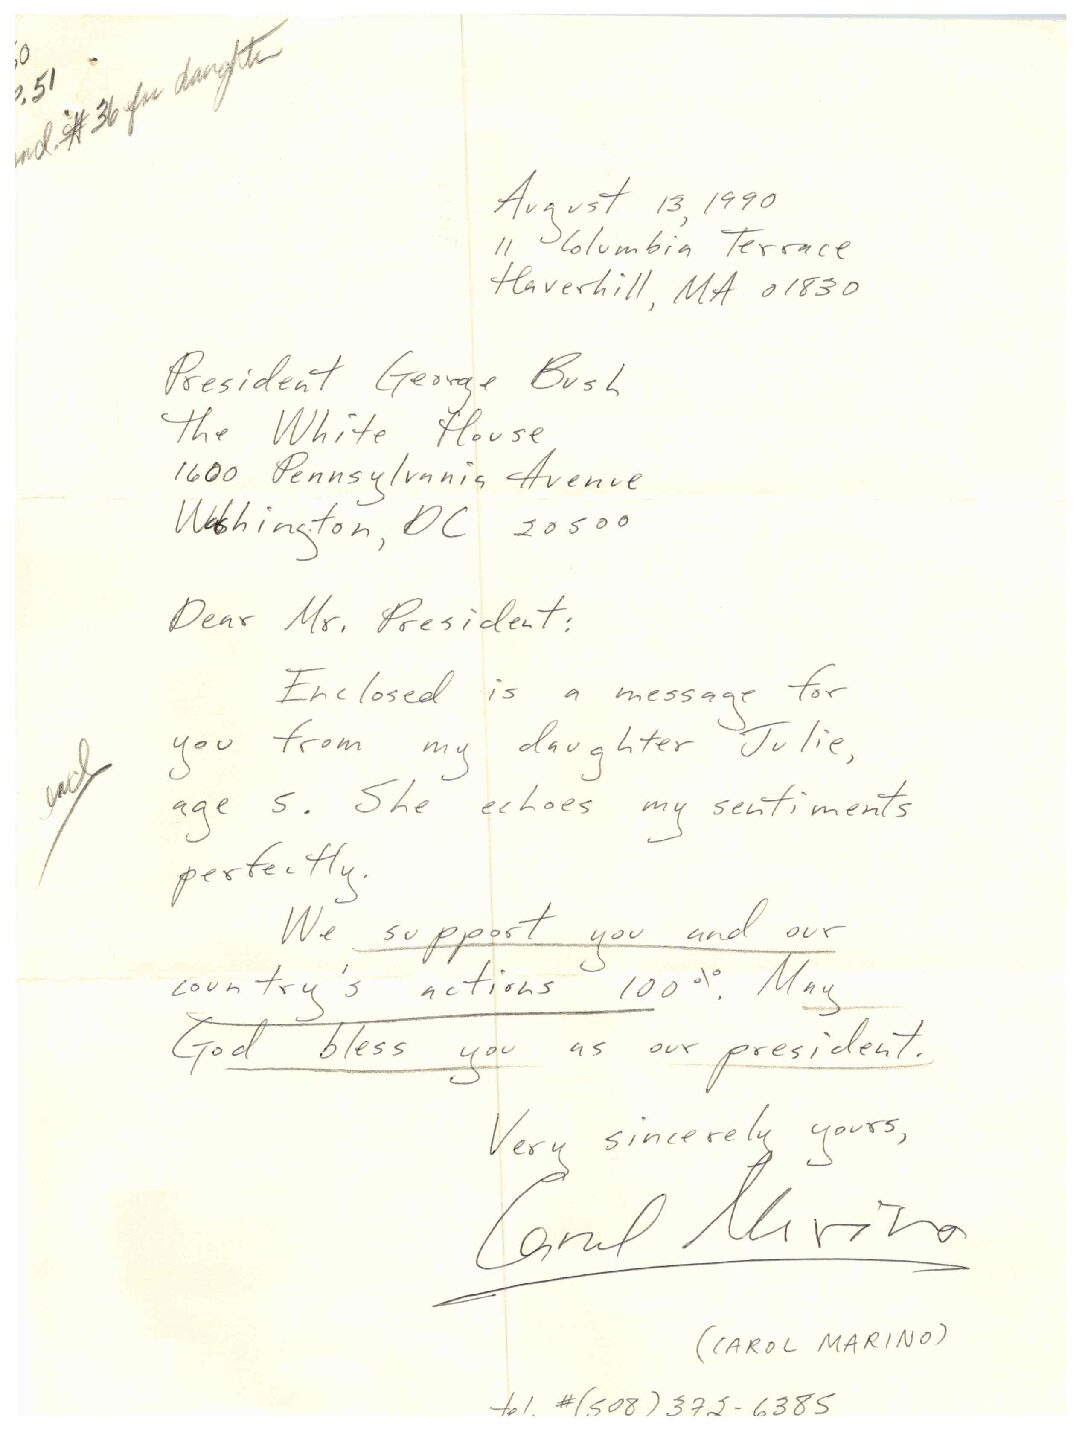 50
P.51
encl. #36 for daughter
August 13, 1990
11 Columbia Terrace
Haverhill, MA 01830
President George Bush
The White House
1600 Pennsylvania Avenue
Washington, DC 20500
Dear Mr. President:
Enclosed is a message for
you from my daughter Julie,
age 5. She echoes my sentiments
perfectly.
encl
We support you and our
country's actions 100%. May
God bless you as our president.
Very sincerely yours,
Carol Marino
(CAROL MARINO)
tel. #(508) 372-6385